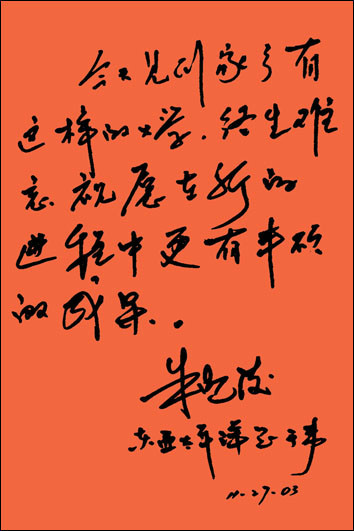 今天见到家乡有
这样的大学，终生难
忘 祝愿在新的
进程中更有丰硕
的成果。
朱
东亚太平洋 干事
11-27-03